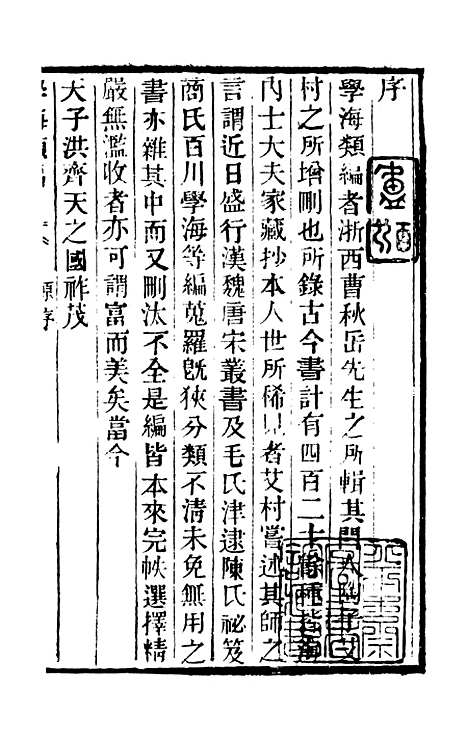 序
學海類編者浙西曹秋岳先生之所輯其門人陶子艾
村之所增刪也所錄古今書計有四百二十餘種皆海
內士大夫家藏抄本人世所稀見者艾村嘗述其師之
言謂近日盛行漢魏唐宋叢書及毛氏津逮陳氏祕笈
商氏百川學海等編蒐羅旣狹分類不淸未免無用之
書亦雜其中而又刪汰不全是編皆本來完帙選擇精
嚴無濫收者亦可謂富而美矣當今
天子洪齊天之國祚茂
學海類編
原序